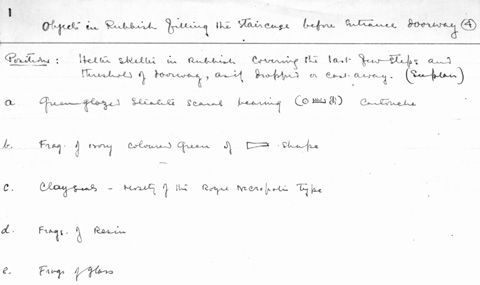 1
Objects in Rubbish filling the Staircase before Entrance doorway (4)
Positions: Helter Skelter in Rubbish covering the last few steps and
threshold of doorway, as if dropped or cast away. (See plan)
a Green glazed Steatite scarab bearing Cartouche
b. Frag. of ivory coloured Green of shape
c. Clay seals - mostly of the Royal Necropolis Type
d. Frags. of Resin
e. Frags of glass